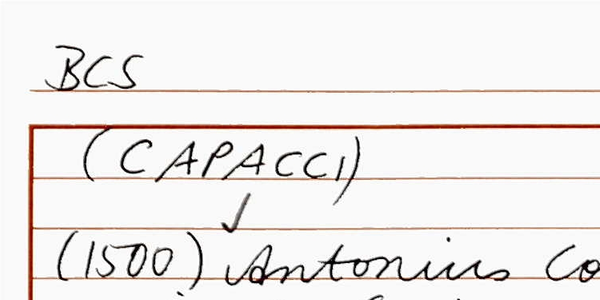 BCS
(CAPACCI)
(1500) Antonius Co